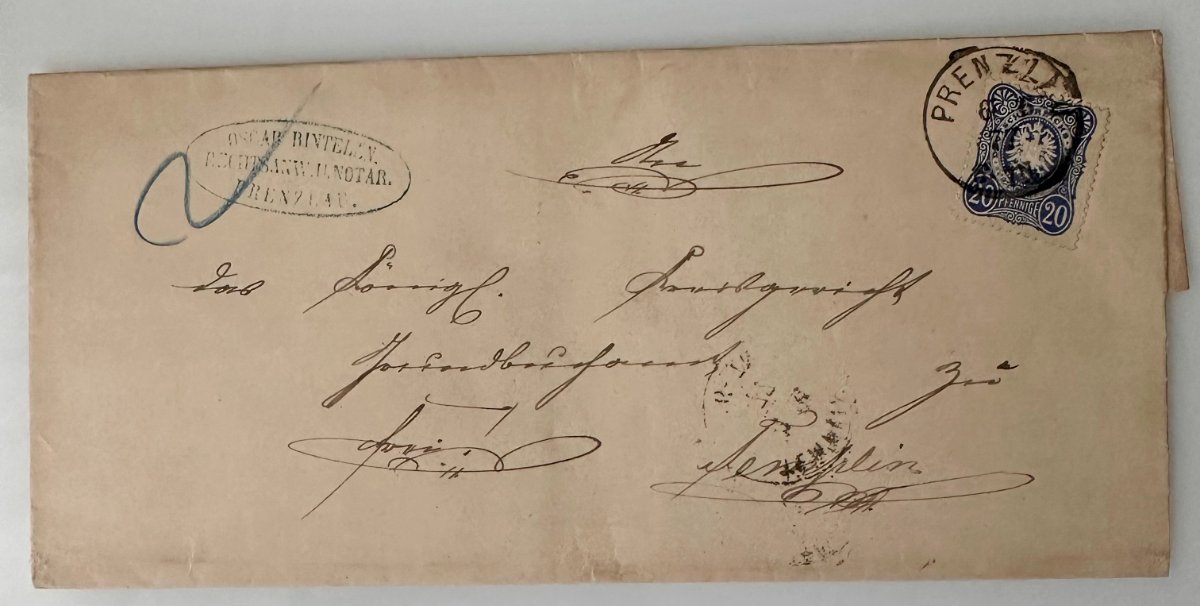 OSCAR RINTELEN.
RECHTSANW. U. NOTAR.
PRENZLAU.
PRENZL
20 PFENNIGE 20
An
das Königl. Kreisgericht
Grundbuchamt zu
frei
Templin